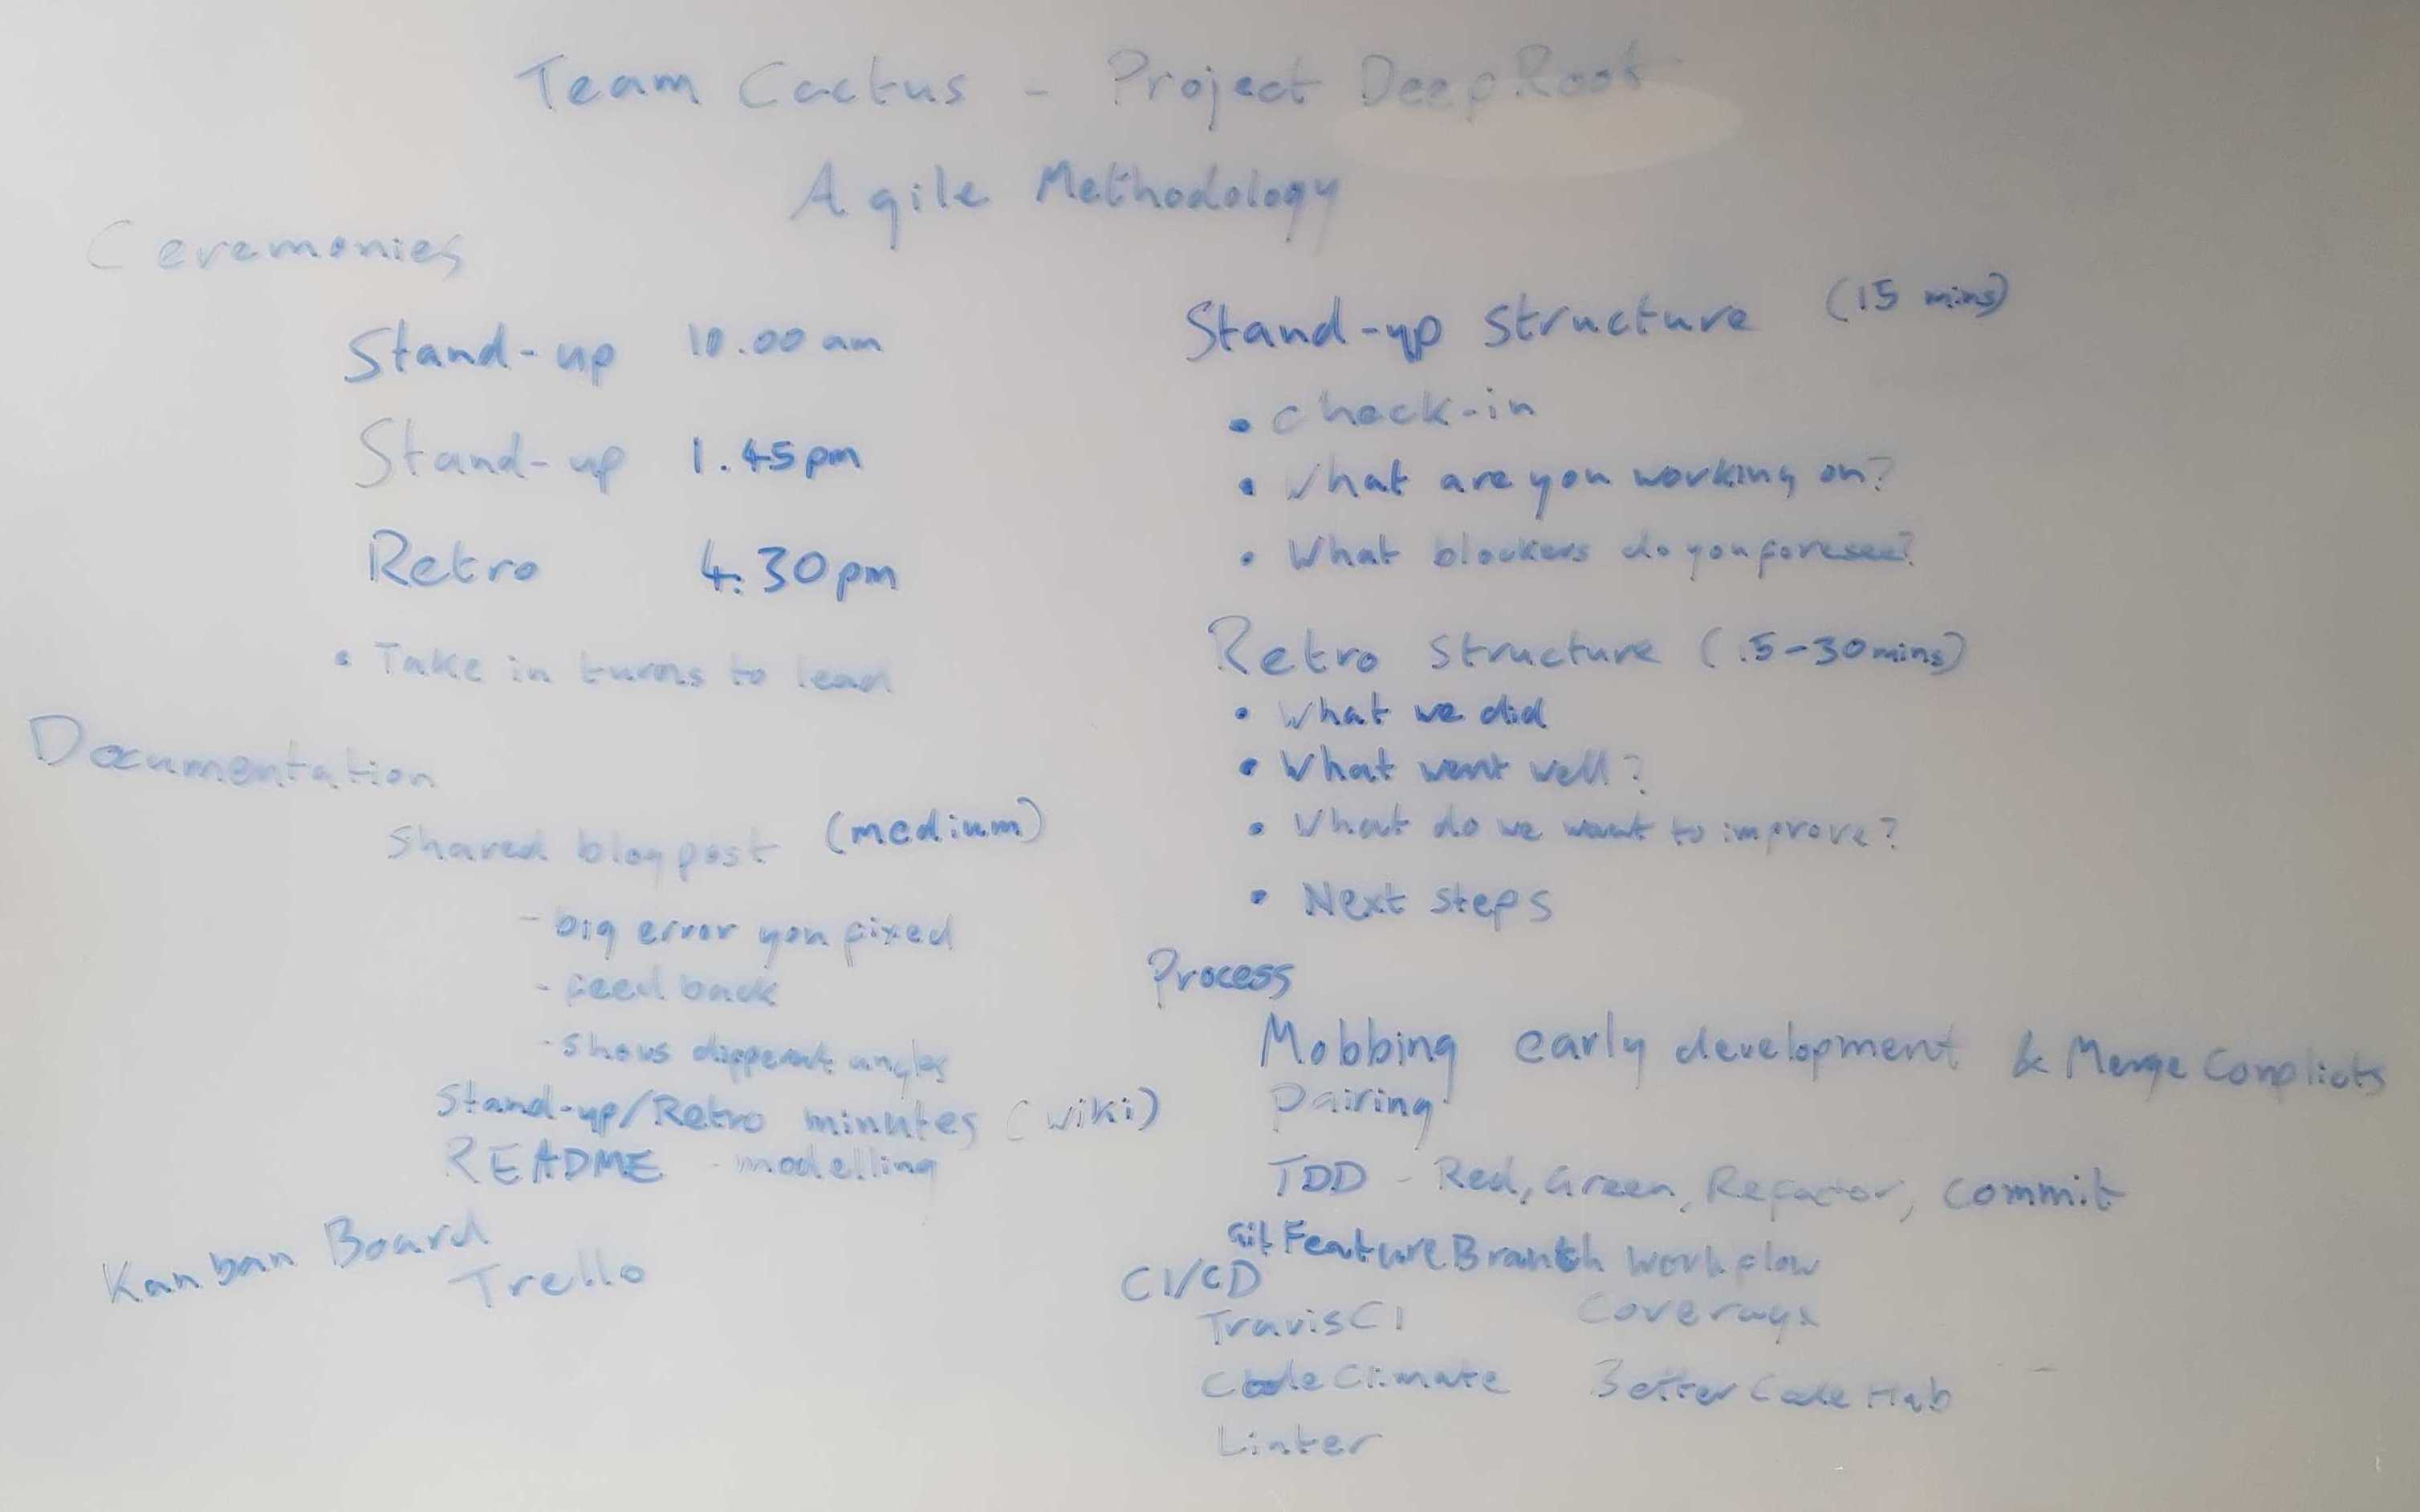 Team Cactus - Project DeepRoot
Agile Methodology
Ceremonies
Stand-up 10.00 am
Stand-up 1.45pm
Retro 4.30pm
• Take in turns to lead
Documentation
Shared blog post (medium)
- big error you fixed
- feedback
- shows different angles
Stand-up/Retro minutes (wiki)
README - modelling
Kanban Board
Trello
Stand-up structure (15 mins)
• Check-in
• What are you working on?
• What blockers do you foresee?
Retro structure (15-30mins)
• What we did
• What went well?
• What do we want to improve?
• Next steps
Process
Mobbing early development & Merge Conflicts
Pairing
TDD - Red, Green, Refactor, commit
Git Feature Branch Workflow
CI/CD
TravisCI Coverage
CodeClimate BetterCodeHub
Linter